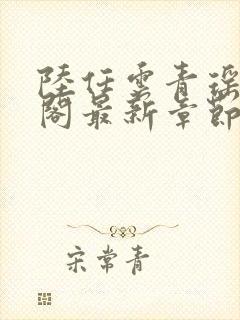 陸任雲青瑶
閣最新章節
宋常青